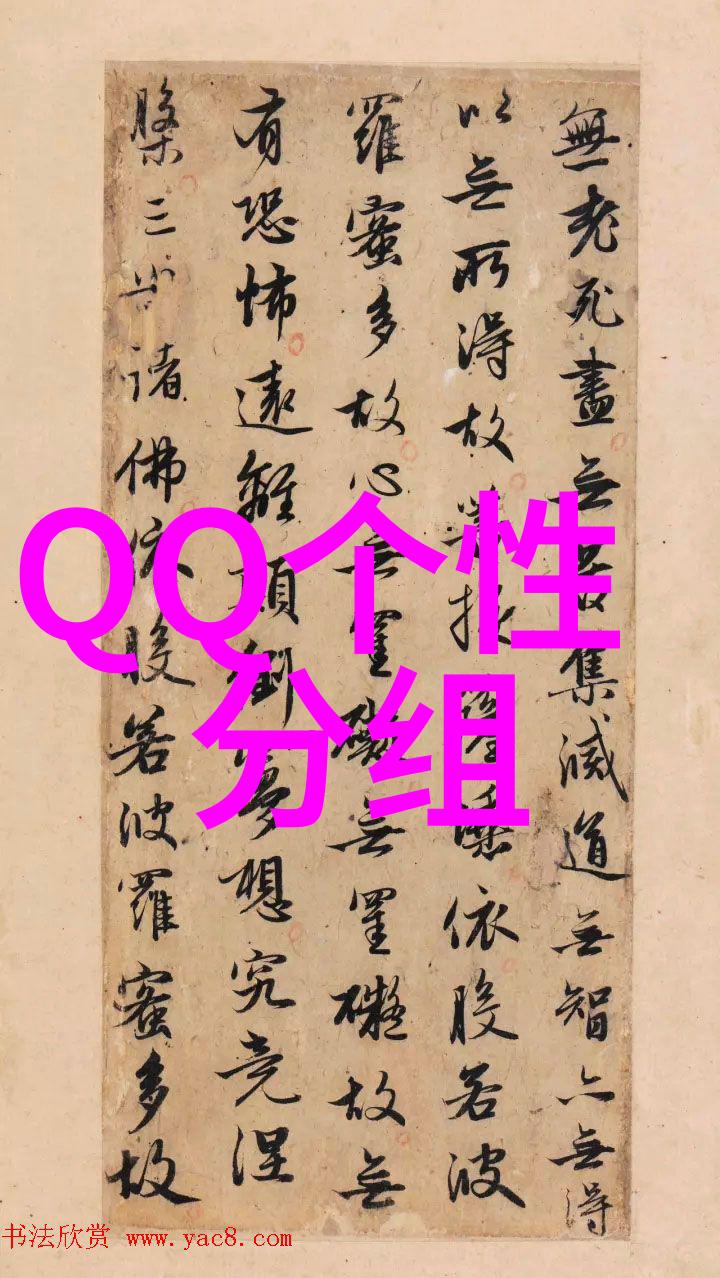 無老死盡無苦集滅道無智亦無得
以無所得故菩提薩埵依般若波
羅蜜多故心無罣礙無罣礙故無
有恐怖遠離顛倒夢想究竟涅
槃三世諸佛依般若波羅蜜多故
QQ个性
分组
书法欣赏 www.yac8.com